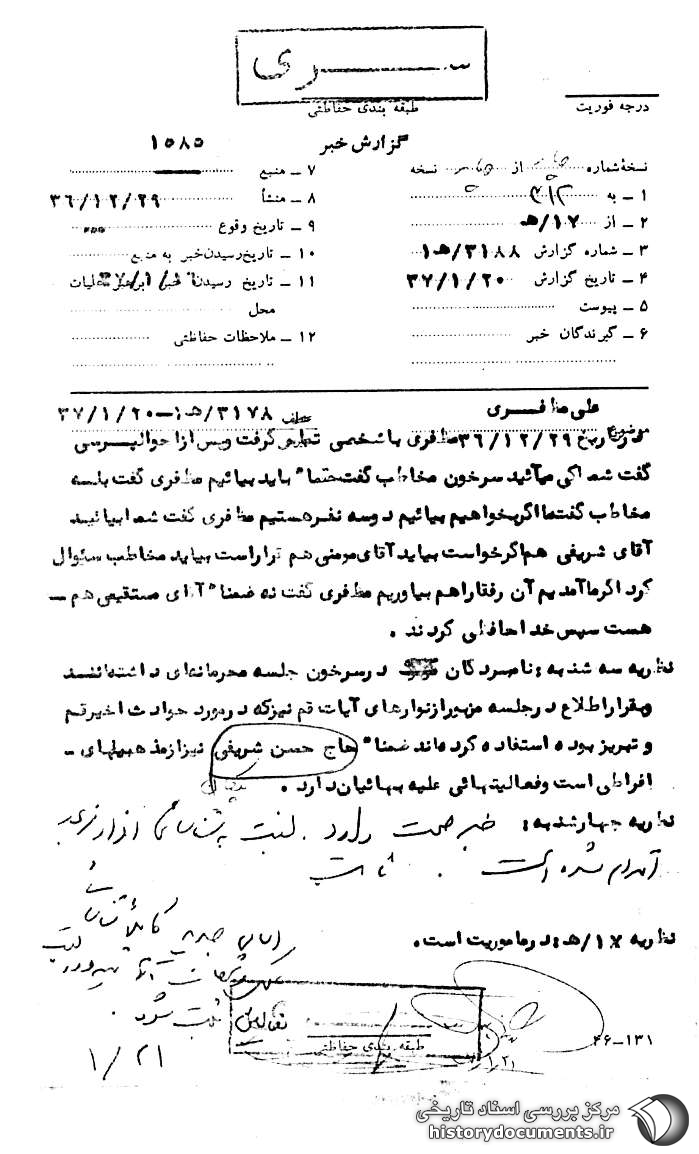 سری
طبقه بندی حفاظتی
درجه فوریت
گزارش خبر
۱۵۸۵
نسخهٔ شماره از نسخه
۱ ـ به ۳۱۲
۲ ـ از ۱۷/هـ
۳ ـ شماره گزارش ۳۱۸۸/هـ۱
۴ ـ تاریخ گزارش ۳۷/۱/۲۰
۵ ـ پیوست
۶ ـ گیرندگان خبر
۷ ـ منبع
۸ ـ منشأ
۳۶/۱۲/۲۹
۹ ـ تاریخ وقوع
۱۰ ـ تاریخ رسیدن خبر به منبع
۱۱ ـ تاریخ رسیدن خبر عملیات
محل
۱۲ ـ ملاحظات حفاظتی
علی مظفری
موضوع
عطف ۳۱۷۸/هـ۱-۳۷/۱/۲۰
۳۶/۱۲/۲۹ مظفری با شخصی تماس گرفت و پس از احوالپرسی
گفت شما کی میآئید سرخون مخاطب گفت حتما" باید بیائیم مظفری گفت بله
مخاطب گفت ما اگر بخواهیم بیائیم دو سه نفر هستیم مظفری گفت شما بیائید
آقای شریفی هم اگر خواست بیاید آقای مومنی هم قرار است بیاید مخاطب سئوال
کرد اگر ما آمدیم آن رفقا را هم بیاوریم مظفری گفت نه ضمنا" آقای مستقیمی هم ـ
هست سپس خدا حافظی کردند .
نظریه سه شنبه : نامبردگان در سرخون جلسه محرمانه‌ای داشته‌اند
و بقرار اطلاع در جلسه مزبور از نوارهای آیات قم نیز که در مورد حوادث اخیر قم
و تبریز بوده استفاده کرده‌اند ضمنا" حاج حسن شریفی نیز از مذهبیهای ـ
افراطی است و فعالیتهائی علیه بهائیان دارد .
نظریه چهارشنبه : خبر صحت دارد . نسبت به شناسائی
اقدام شده است .
نظریه ۱۷/هـ : در ماموریت است .
ثبت شود .
۱/۲۱
طبقه بندی حفاظتی
۴۶-۱۳۱
مرکز بررسی اسناد تاریخی
historydocuments.ir